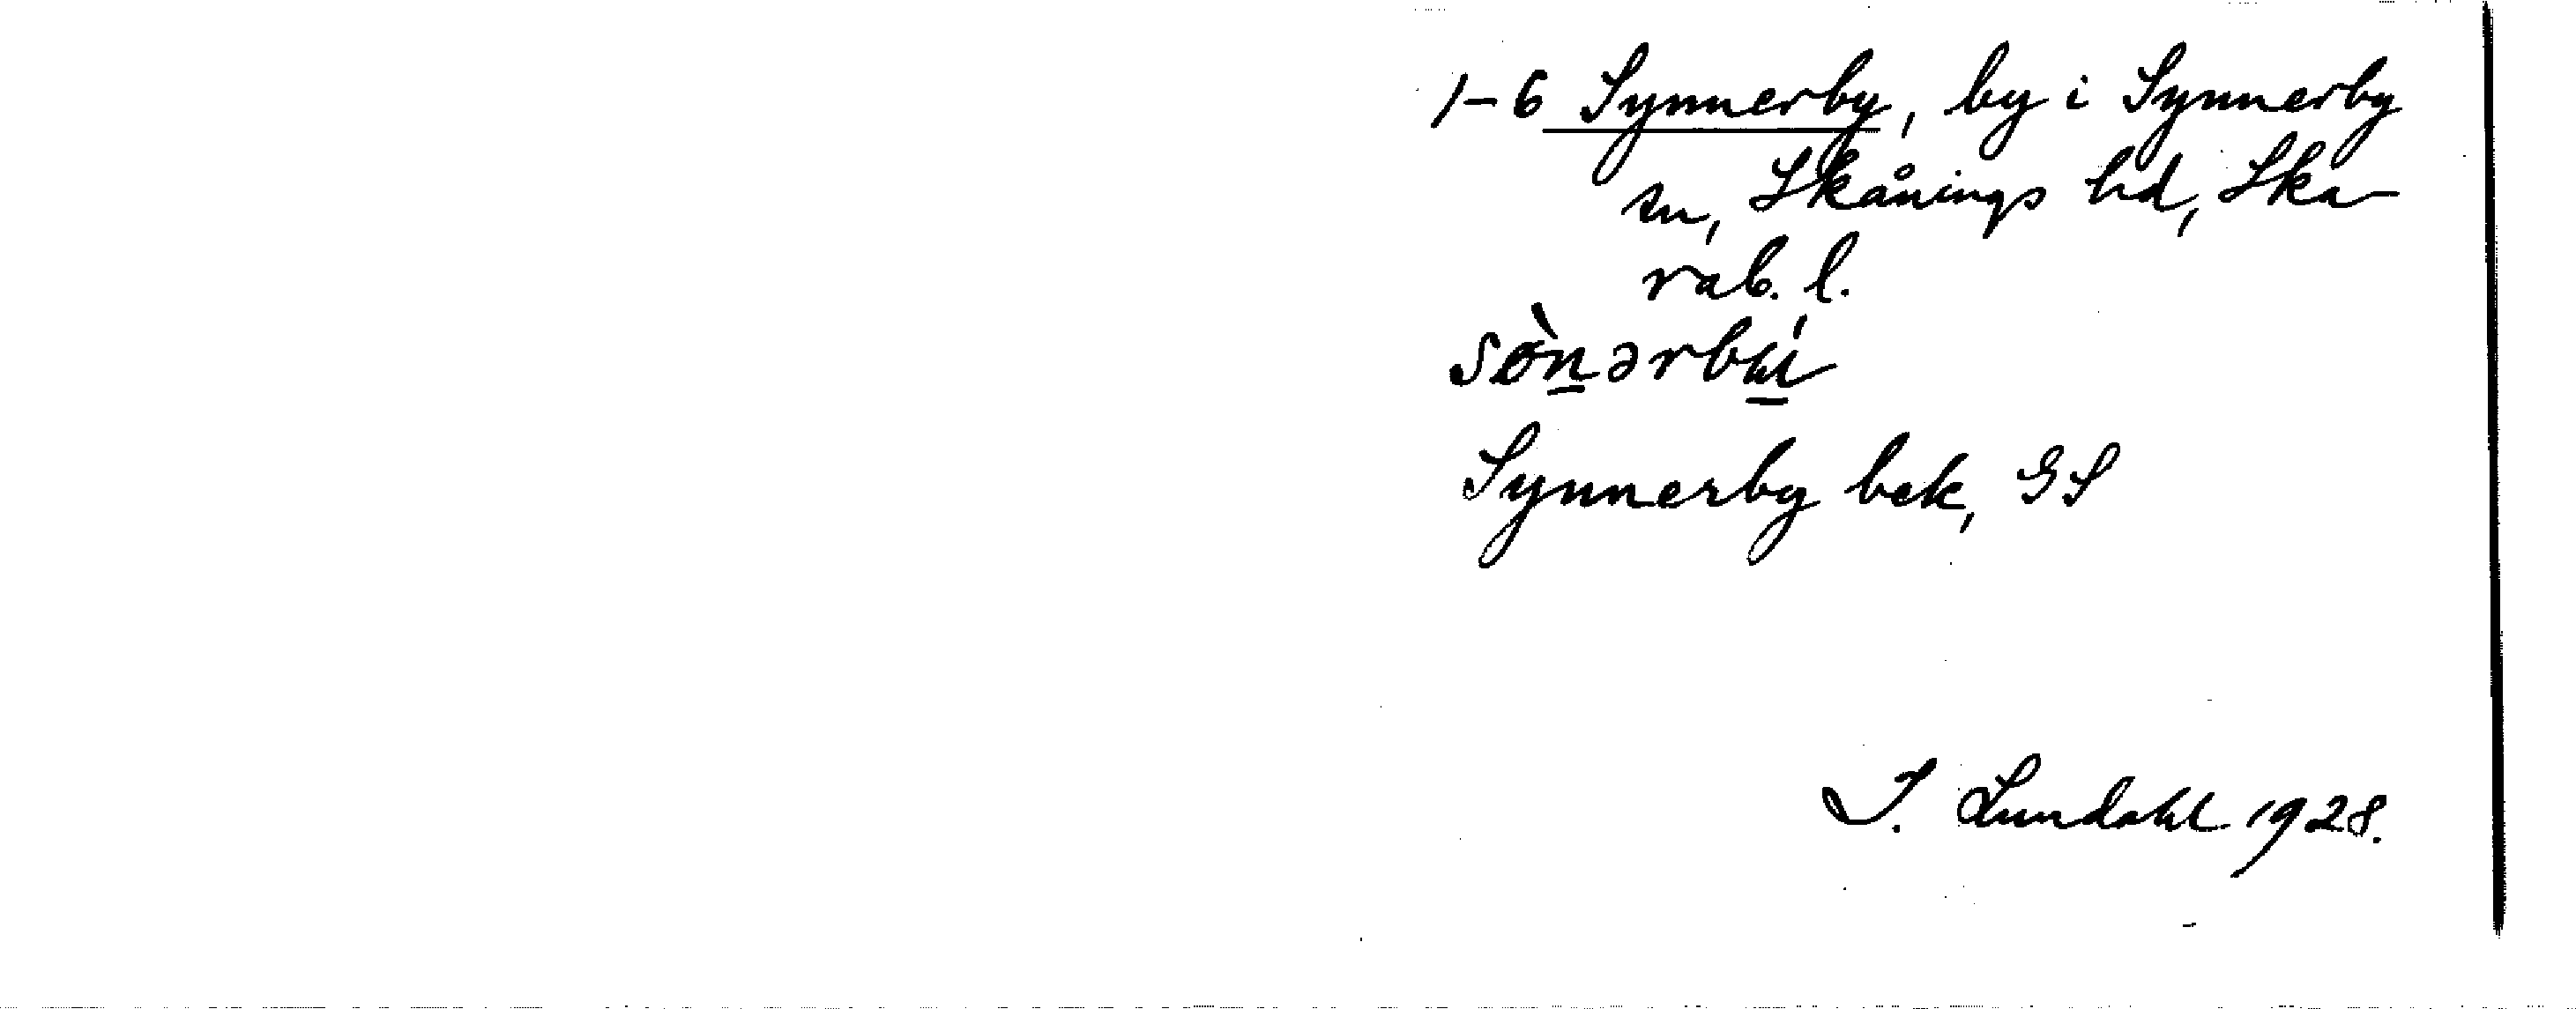 1-6 Synnerby, by i Synnerby
sn, Skånings hd, Ska-
rab. l.
Synnerby bek, GS
I. Lundahl 1928.